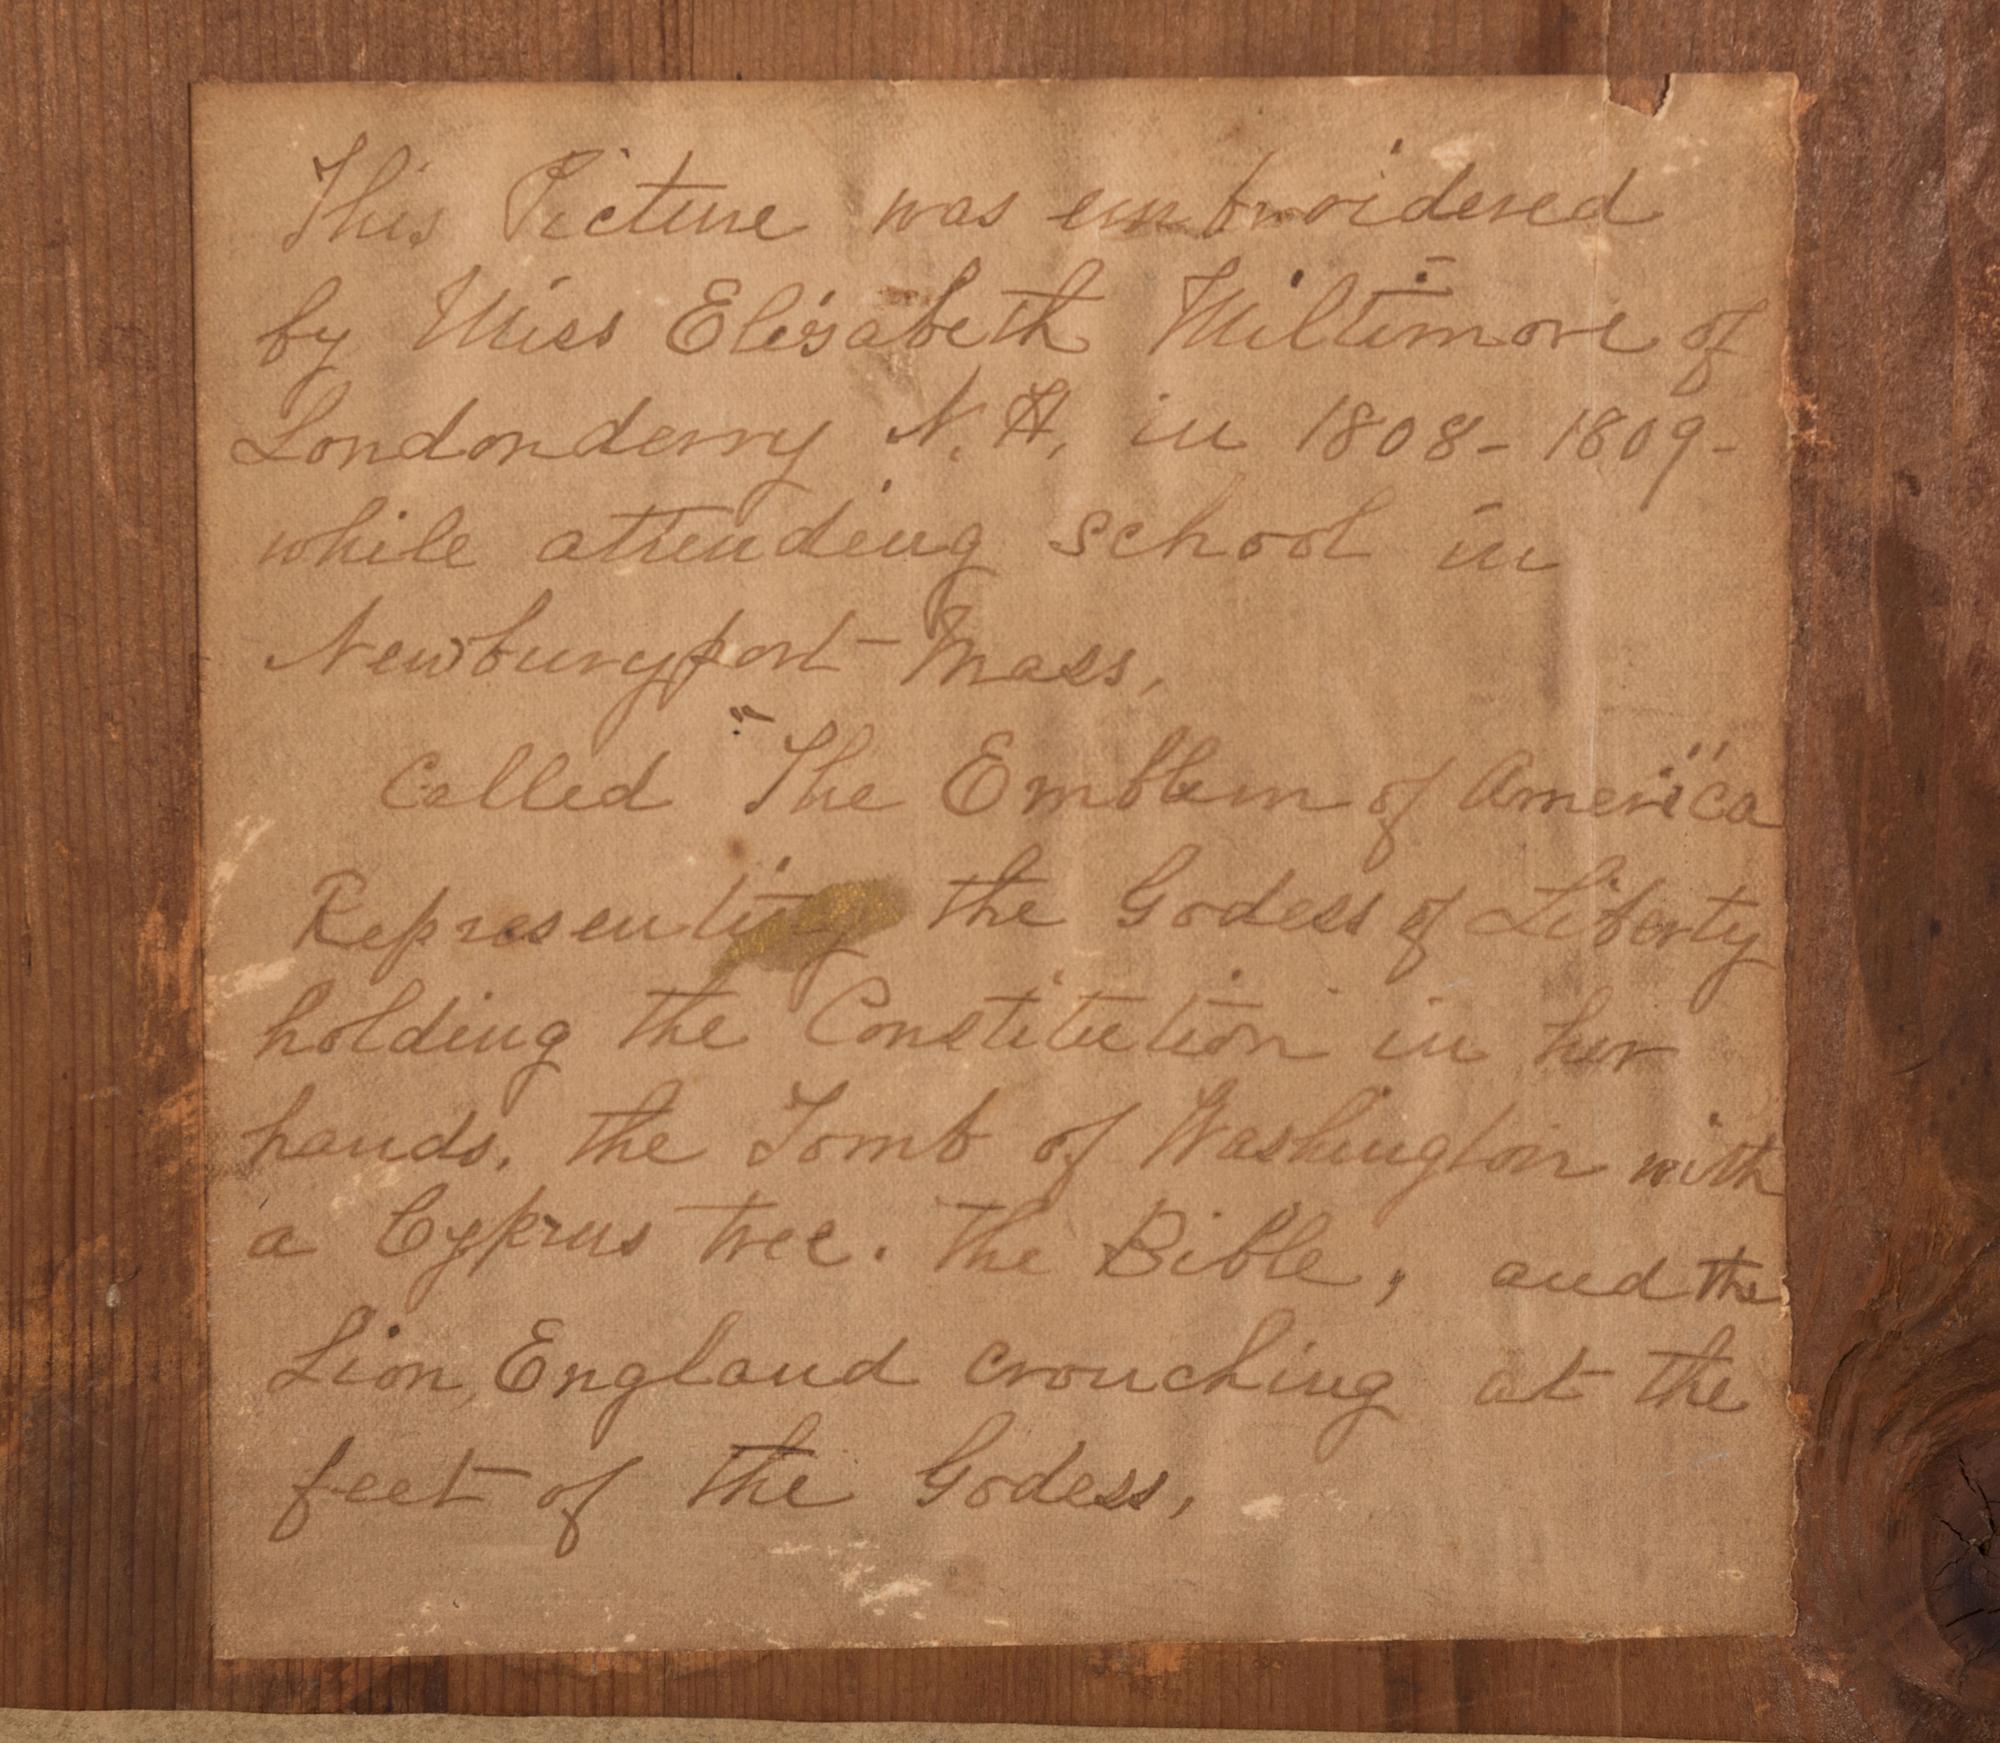 This Picture was embroidered
by Miss Elisabeth Wiltimore of
Londonderry N. H. in 1808 - 1809 -
while attending school in
Newburyport - Mass,
Called "The Emblem of America"
Representing the Godess of Liberty
holding the Constitution in her
hands. the Tomb of Washington with
a Cyprus tree. The Bible, and the
Lion, England crouching at the
feet of the Godess,